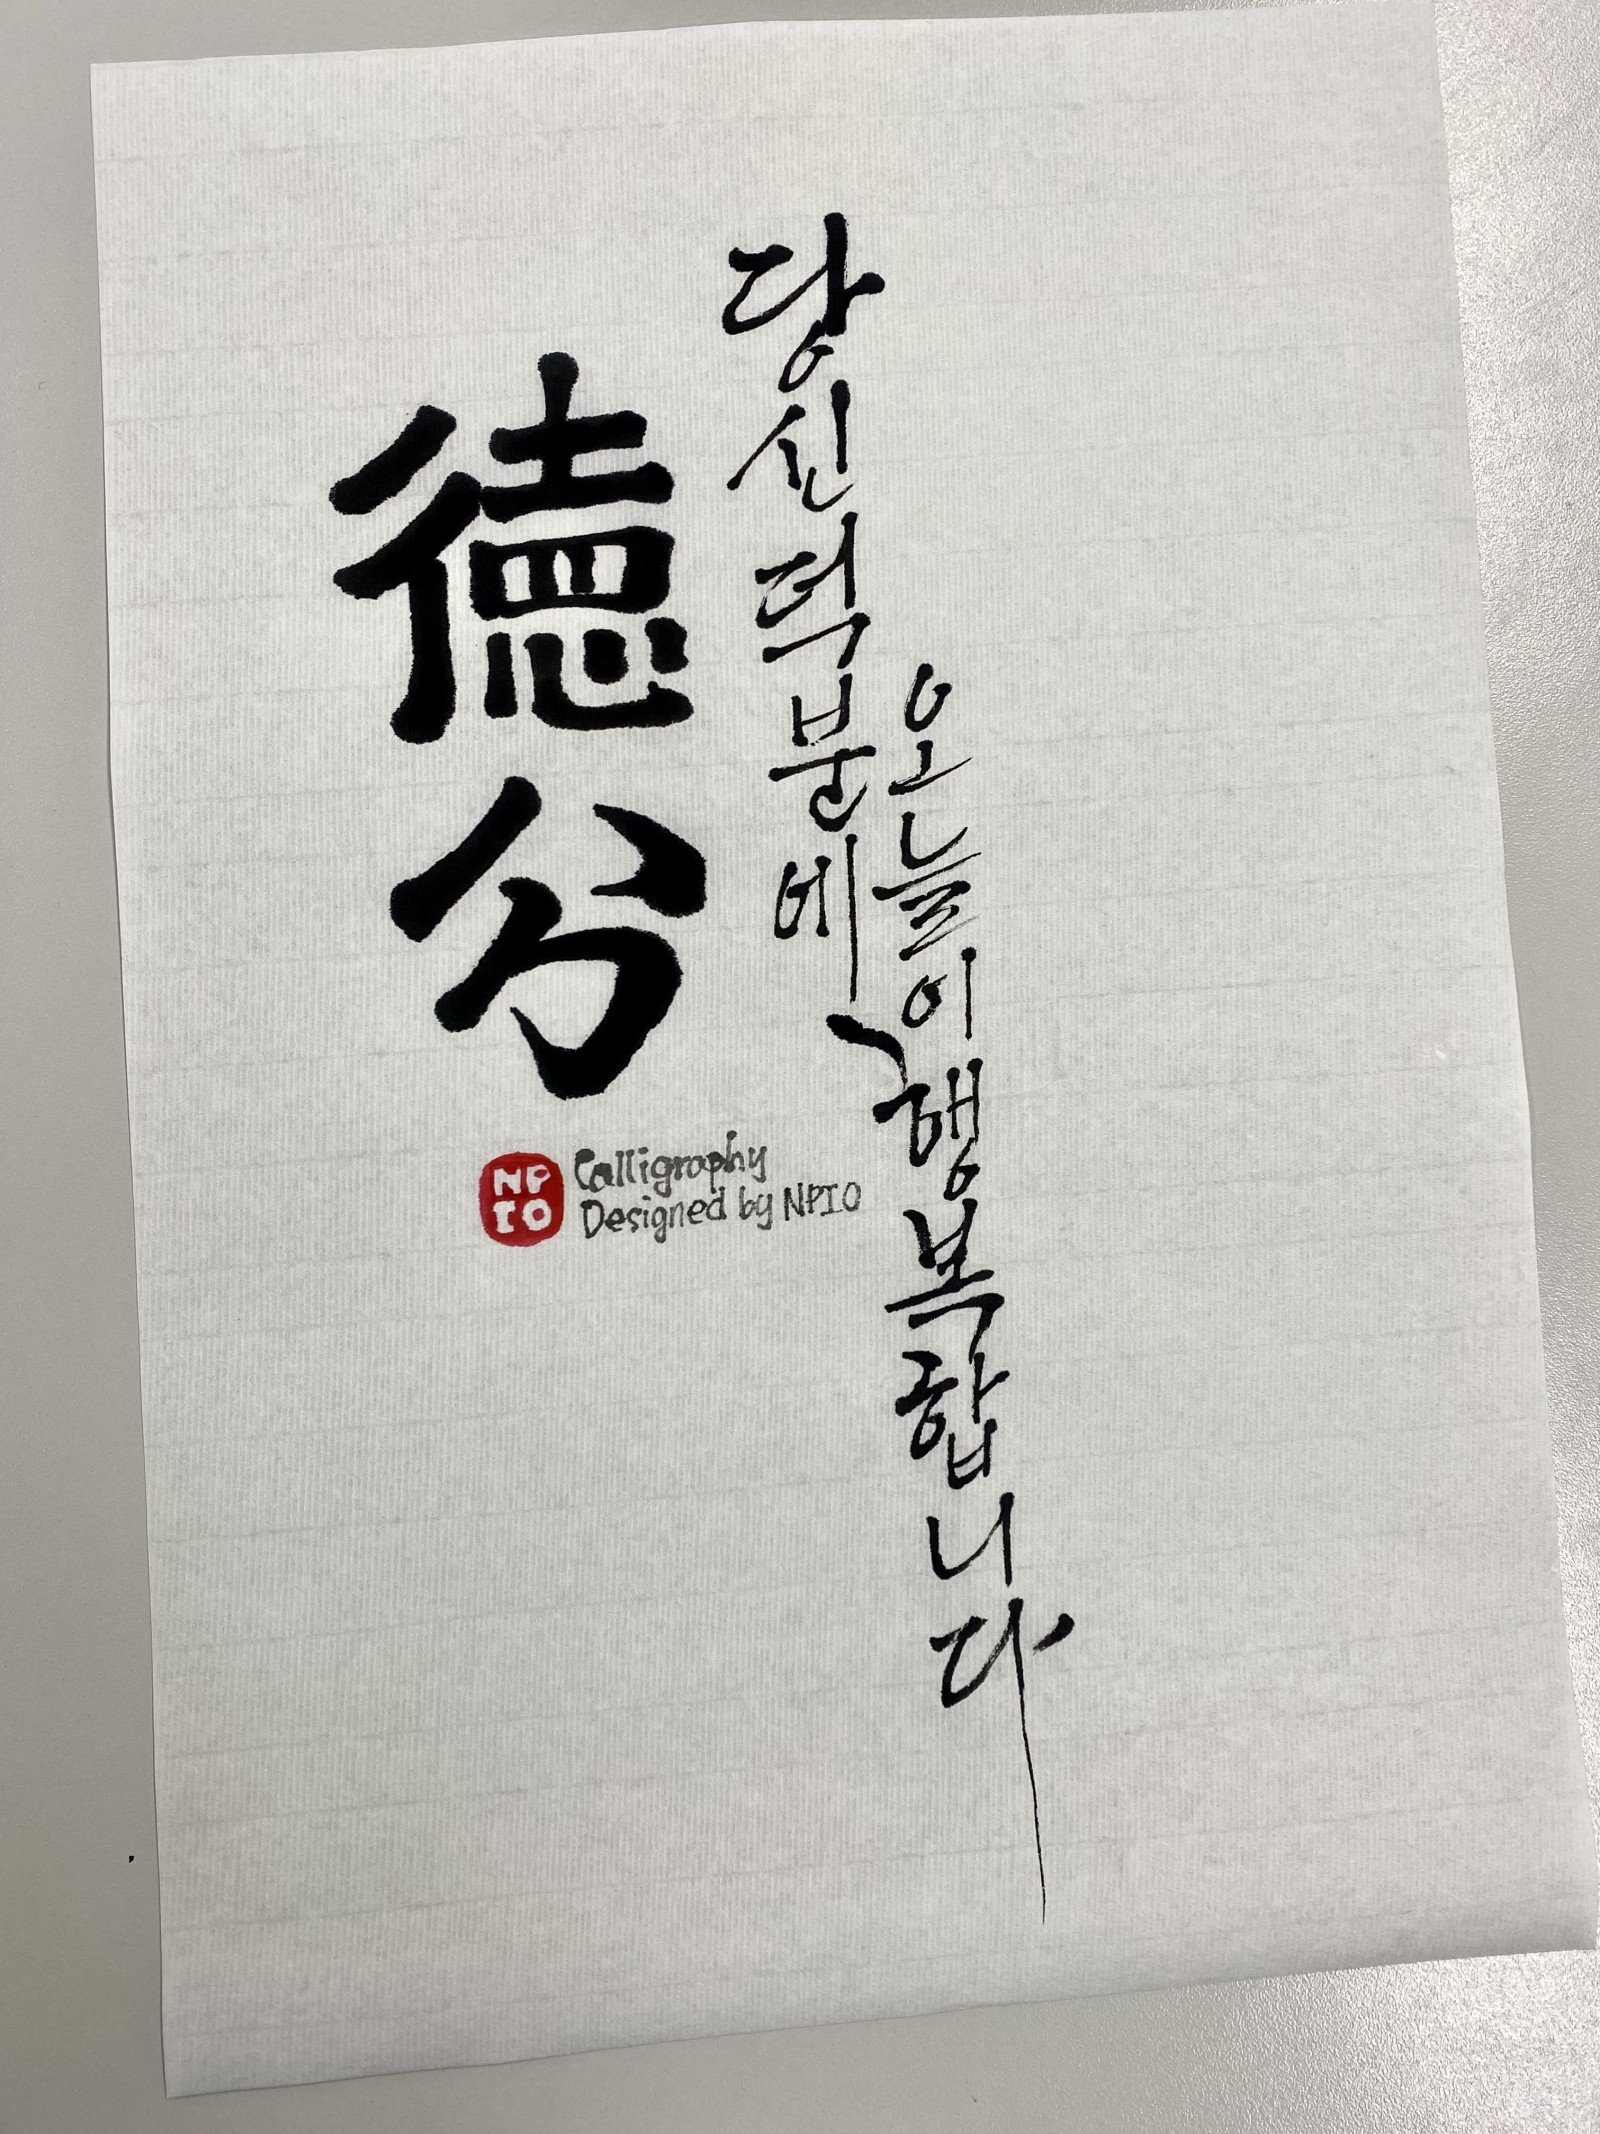 德分
당신 덕분에
오늘이 행복합니다
NP
IO
Calligraphy
Designed by NPIO